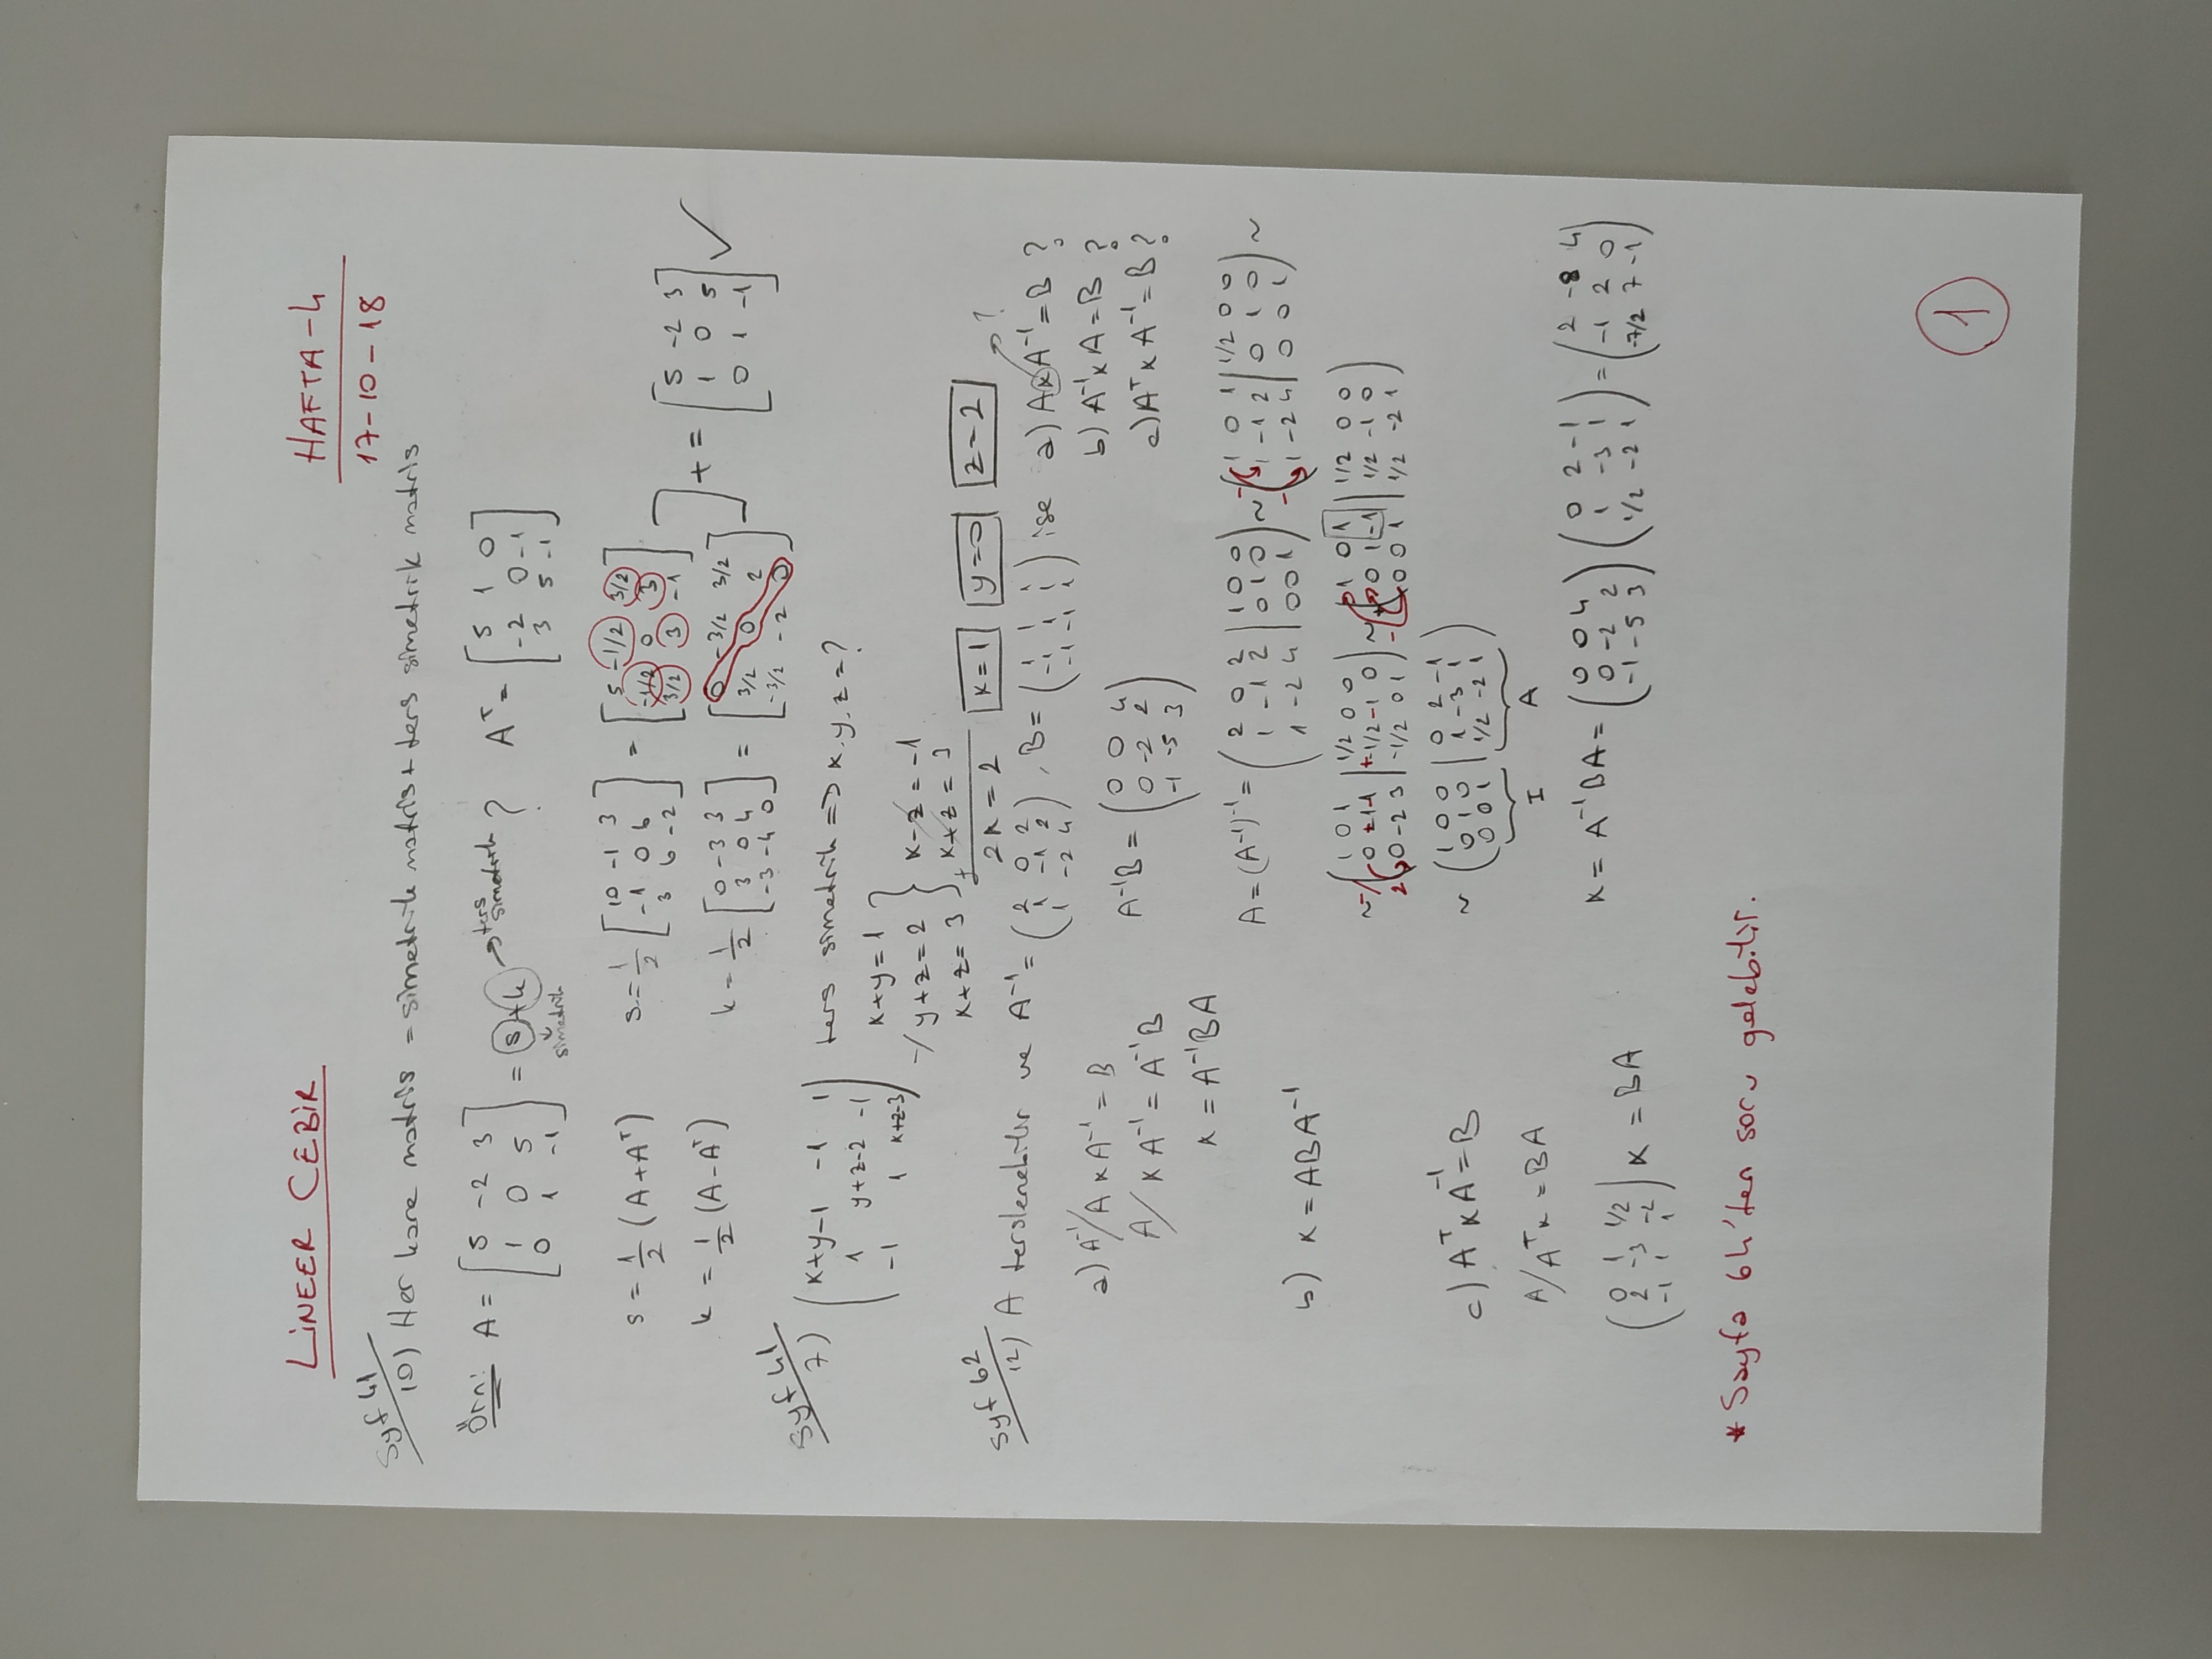 LİNEER CEBİR
HAFTA-4
17-10-18
Syf 41
10) Her kare matris = simetrik matris + ters simetrik matris
Örn: A = [5 -2 3; 1 0 5; 0 1 -1] = s + k ? A^T = [5 1 0; -2 0 -1; 3 5 -1]
ters simetrik
simetrik
s = 1/2 (A+A^T) s = 1/2 [10 -1 3; -1 0 6; 3 6 -2] = [5 -1/2 3/2; -1/2 0 3; 3/2 3 -1]
k = 1/2 (A-A^T) k = 1/2 [0 -3 3; 3 0 4; -3 -4 0] = [0 -3/2 3/2; 3/2 0 2; -3/2 -2 0] ] + = [5 -2 3; 1 0 5; 0 1 -1] ✓
Syf 41
7) (x+y-1 -1 1; 1 y+z-2 -1; -1 1 x+z-3) ters simetrik => x,y,z = ?
x+y=1
-/ y+z=2 } x-z = -1
x+z=3 + x+z = 3
2x = 2 x=1 y=0 z=2
Syf 62
12) A terslenebilir ve A^-1 = (2 0 2; 1 -1 2; 1 -2 4), B = (1 1 1; -1 1 1; -1 -1 1) ise a) AxA^-1 = B ?
?
b) A^-1xA = B ?
c) A^TxA^-1 = B ?
a) A^-1/ A x A^-1 = B
A/ x A^-1 = A^-1B
x = A^-1BA
A^-1B = (0 0 4; 0 -2 2; -1 -5 3)
A = (A^-1)^-1 = (2 0 2 | 1 0 0; 1 -1 2 | 0 1 0; 1 -2 4 | 0 0 1) ~ (1 0 1 | 1/2 0 0; 1 -1 2 | 0 1 0; 1 -2 4 | 0 0 1) ~
b) x = ABA^-1
~ (1 0 1 | 1/2 0 0; 0 +1 -1 | +1/2 -1 0; 0 -2 3 | -1/2 0 1) ~ (1 0 1 | 1/2 0 0; 0 1 -1 | 1/2 -1 0; 0 0 1 | 1/2 -2 1)
~ (1 0 0 | 0 2 -1; 0 1 0 | 1 -3 1; 0 0 1 | 1/2 -2 1)
I A
c) A^TxA^-1 = B
A/ A^Tx = BA
x = A^-1BA = (0 0 4; 0 -2 2; -1 -5 3) (0 2 -1; 1 -3 1; 1/2 -2 1) = (2 -8 4; -1 2 0; -7/2 7 -1)
(0 1 1/2; 2 -3 -2; -1 1 1) x = BA
* Sayfa 64'ten soru gelebilir.
1